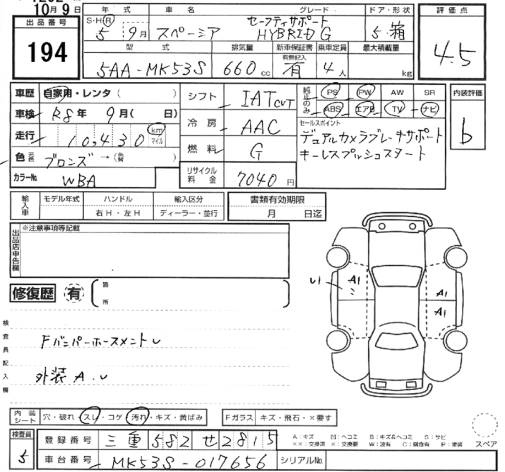 10月9日
出品番号
194
年式
車名
グレード
ドア・形状
評価点
S・H・R
5年9月
スペーシア
セーフティサポート
HYBRID G
5 箱
4.5
型式
排気量
新車保証書
乗車定員
最大積載量
5AA-MK53S
660cc
有無記入
有
4人
kg
車歴
自家用・レンタ( )
シフト
IAT CVT
純正のみ
PS
PW
AW
SR
内装評価
車検
R8年9月( 日)
ABS
エアB
TV
ナビ
b
走行
10,430
km
マイル
冷房
AAC
セールスポイント
デュアルカメラブレーキサポート
キーレスプッシュスタート
色
ブロンズ→( )
燃料
G
カラーNo.
WBA
リサイクル料金
7040円
輸入車
モデル年式
ハンドル
輸入区分
書類有効期限
右H・左H
ディーラー・並行
月 日迄
出品店申告欄
※注意事項等記載
修復歴
有
箇所
検査員記入欄
Fバンパーホースメント
外装A.U
A1
A1
U1
A1
内装シート
穴・破れ・スレ・コゲ・汚れ・キズ・黄ばみ
Fガラス
キズ・飛石・×要す
スペア
検査員
5
登録番号
三重582せ2815
車台番号
MK53S-017656
シリアルNo.